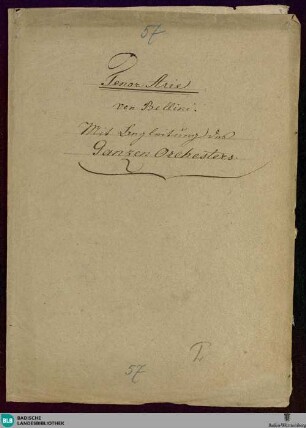 57
Tenor Arie
von Bellini.
Mit Begleitung des
Ganzen Orchesters
57
BLB BADISCHE
LANDESBIBLIOTHEK
Baden-Württemberg